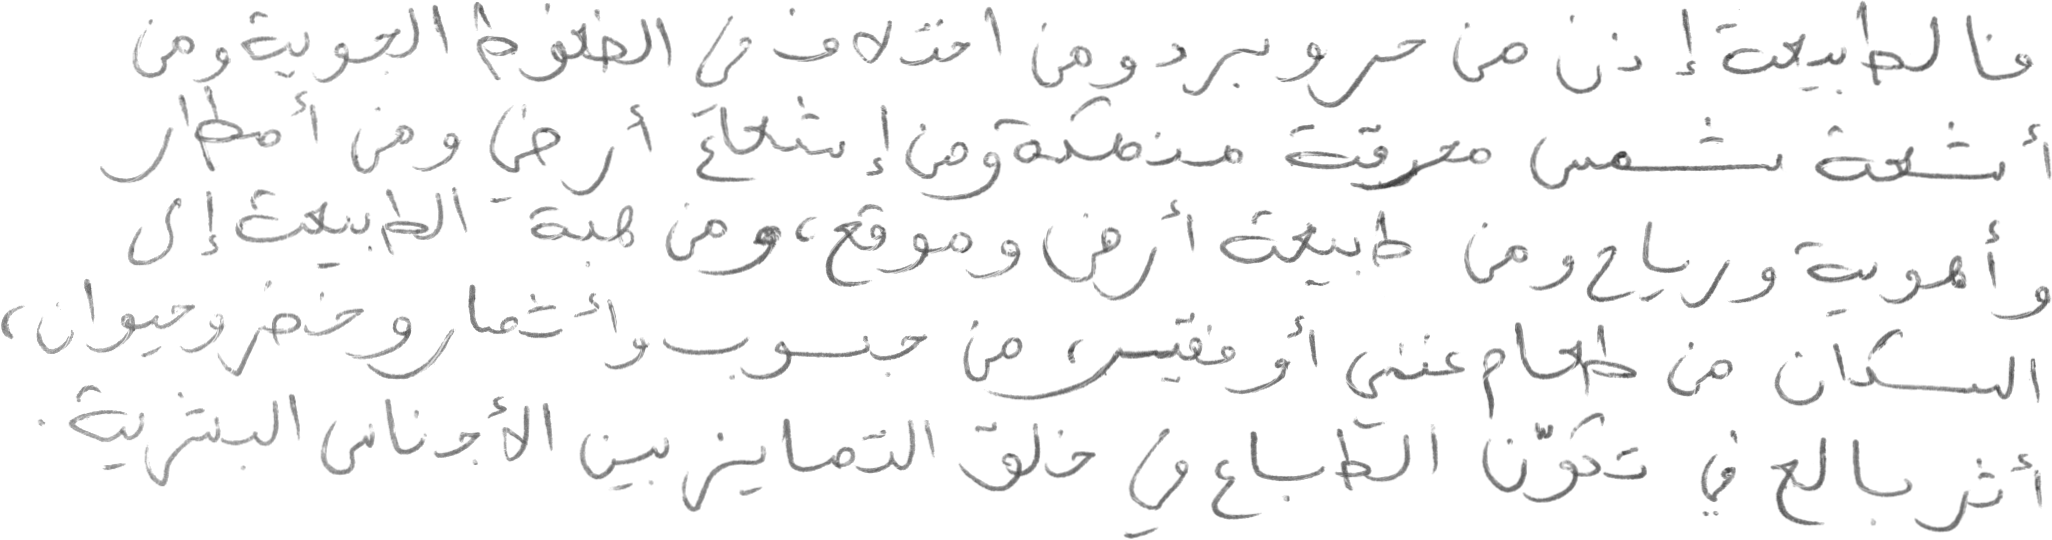 فالطبيعة إذن من حر وبرد ومن اختلاف في الضغوط الجوية ومن
أشعة شمس محرقة منهكة ومن إشعاع أرض ومن أمطار
وأهوية ورياح ومن طبيعة أرض وموقع، ومن هبة الطبيعة إلى
السكان من طعام غني أو فقير، من حبوب وأثمار وخضر وحيوان،
أثر بالغ في تكوّن الطباع في خلق التمايز بين الأجناس البشرية.